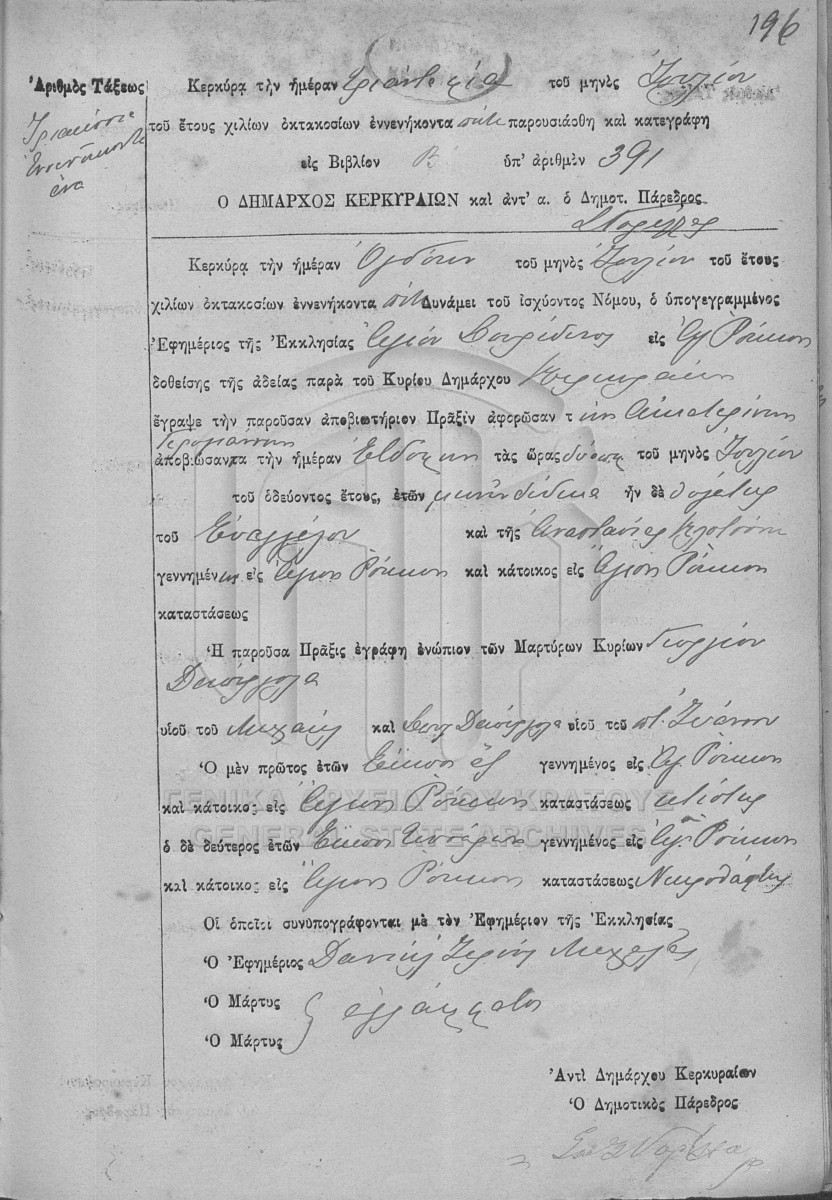 196
Ἀριθμὸς Τάξεως
Τριακόσια
Ἐννενήκοντα
ἕνα
Κερκύρα τὴν ἡμέραν τριάντα μία τοῦ μηνὸς Ἰουλίου
τοῦ ἔτους χιλίων ὀκτακοσίων ἐννενήκοντα πέντε παρουσιάσθη καὶ κατεγράφη
εἰς Βιβλίον Β ὑπ' ἀριθμὸν 391
Ο ΔΗΜΑΡΧΟΣ ΚΕΡΚΥΡΑΙΩΝ καὶ ἀντ' α. ὁ Δημοτ. Πάρεδρος
Κερκύρα τὴν ἡμέραν Ὀγδόην τοῦ μηνὸς Ἰουλίου τοῦ ἔτους
χιλίων ὀκτακοσίων ἐννενήκοντα πέντε Δυνάμει τοῦ ἰσχύοντος Νόμου, ὁ ὑπογεγραμμένος
Ἐφημέριος τῆς Ἐκκλησίας Ἁγίου Σπυρίδωνος εἰς Ἁγ. Ρόκκον
δοθείσης τῆς ἀδείας παρὰ τοῦ Κυρίου Δημάρχου Κερκυραίων
ἔγραψε τὴν παροῦσαν ἀποβιωτήριον Πρᾶξιν ἀφορῶσαν τ ὴν Αἰκατερίνην
ἀποβιώσαντα τὴν ἡμέραν Ἑβδόμην τὰς ὥρας τοῦ μηνὸς Ἰουλίου
τοῦ ὁδεύοντος ἔτους, ἐτῶν μηνῶν δώδεκα ἦν δὲ θυγάτηρ
τοῦ Εὐαγγέλου καὶ τῆς Ἀναστασίας
γεννημέν ην εἰς Ἅγιον Ρόκκον καὶ κάτοικος εἰς Ἅγιον Ρόκκον
καταστάσεως
Ἡ παροῦσα Πρᾶξις ἐγράφη ἐνώπιον τῶν Μαρτύρων Κυρίων Γεωργίου
υἱοῦ τοῦ Μιχαὴλ καὶ υἱοῦ τοῦ Ἰωάννου
Ὁ μὲν πρῶτος ἐτῶν Εἴκοσι ἓξ γεννημένος εἰς Ἁγ. Ρόκκον
καὶ κάτοικος εἰς Ἅγιον Ρόκκον καταστάσεως κτίστης
ὁ δὲ δεύτερος ἐτῶν Εἴκοσι τεσσάρων γεννημένος εἰς Ἁγ. Ρόκκον
καὶ κάτοικος εἰς Ἅγιον Ρόκκον καταστάσεως Νεκροθάπτης
Οἱ ὁποῖοι συνυπογράφονται μὲ τὸν Ἐφημέριον τῆς Ἐκκλησίας
Ὁ Ἐφημέριος Δανιὴλ
Ὁ Μάρτυς ἀγράμματοι
Ὁ Μάρτυς
Ἀντὶ Δημάρχου Κερκυραίων
Ὁ Δημοτικὸς Πάρεδρος
ΓΕΝΙΚΑ ΑΡΧΕΙΑ ΤΟΥ ΚΡΑΤΟΥΣ
GENERAL STATE ARCHIVES